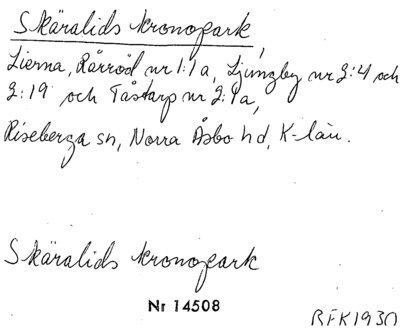 Skäralids kronopark,
Lierna, Rårröd nr 1:1a, Ljungby nr 2:4 och
2:19 och Tåstarp nr 2:1a,
Riseberga sn, Norra Åsbo hd, K-län.
Skäralids kronopark
Nr 14508
RFK1930